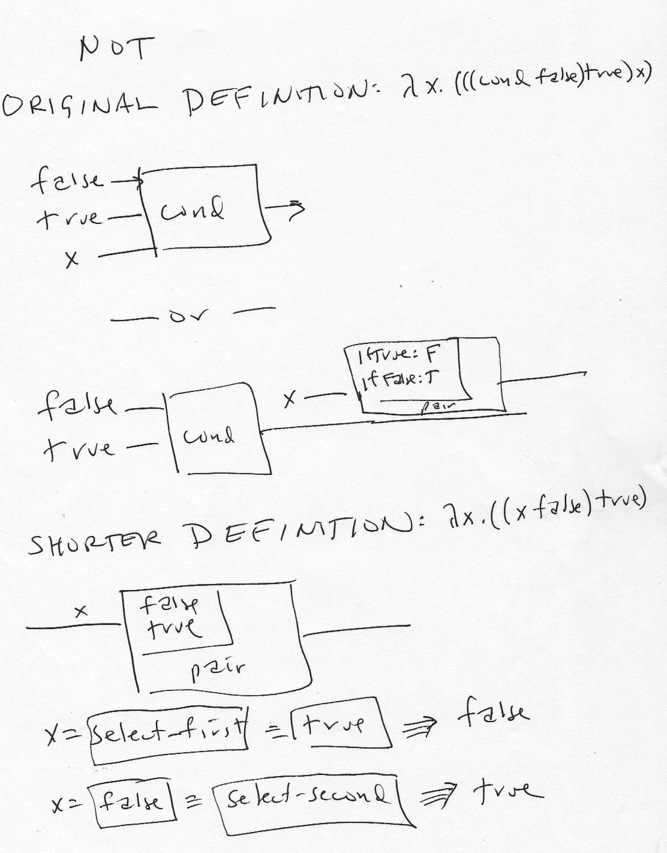 NOT
ORIGINAL DEFINITION: λx.(((cond false)true)x)
false
true
x
cond
or
false
true
cond
x
If True: F
If False: T
pair
SHORTER DEFINITION: λx.((x false)true)
x
false
true
pair
x = select-first ≡ true ⇛ false
x = false ≡ select-second ⇛ true